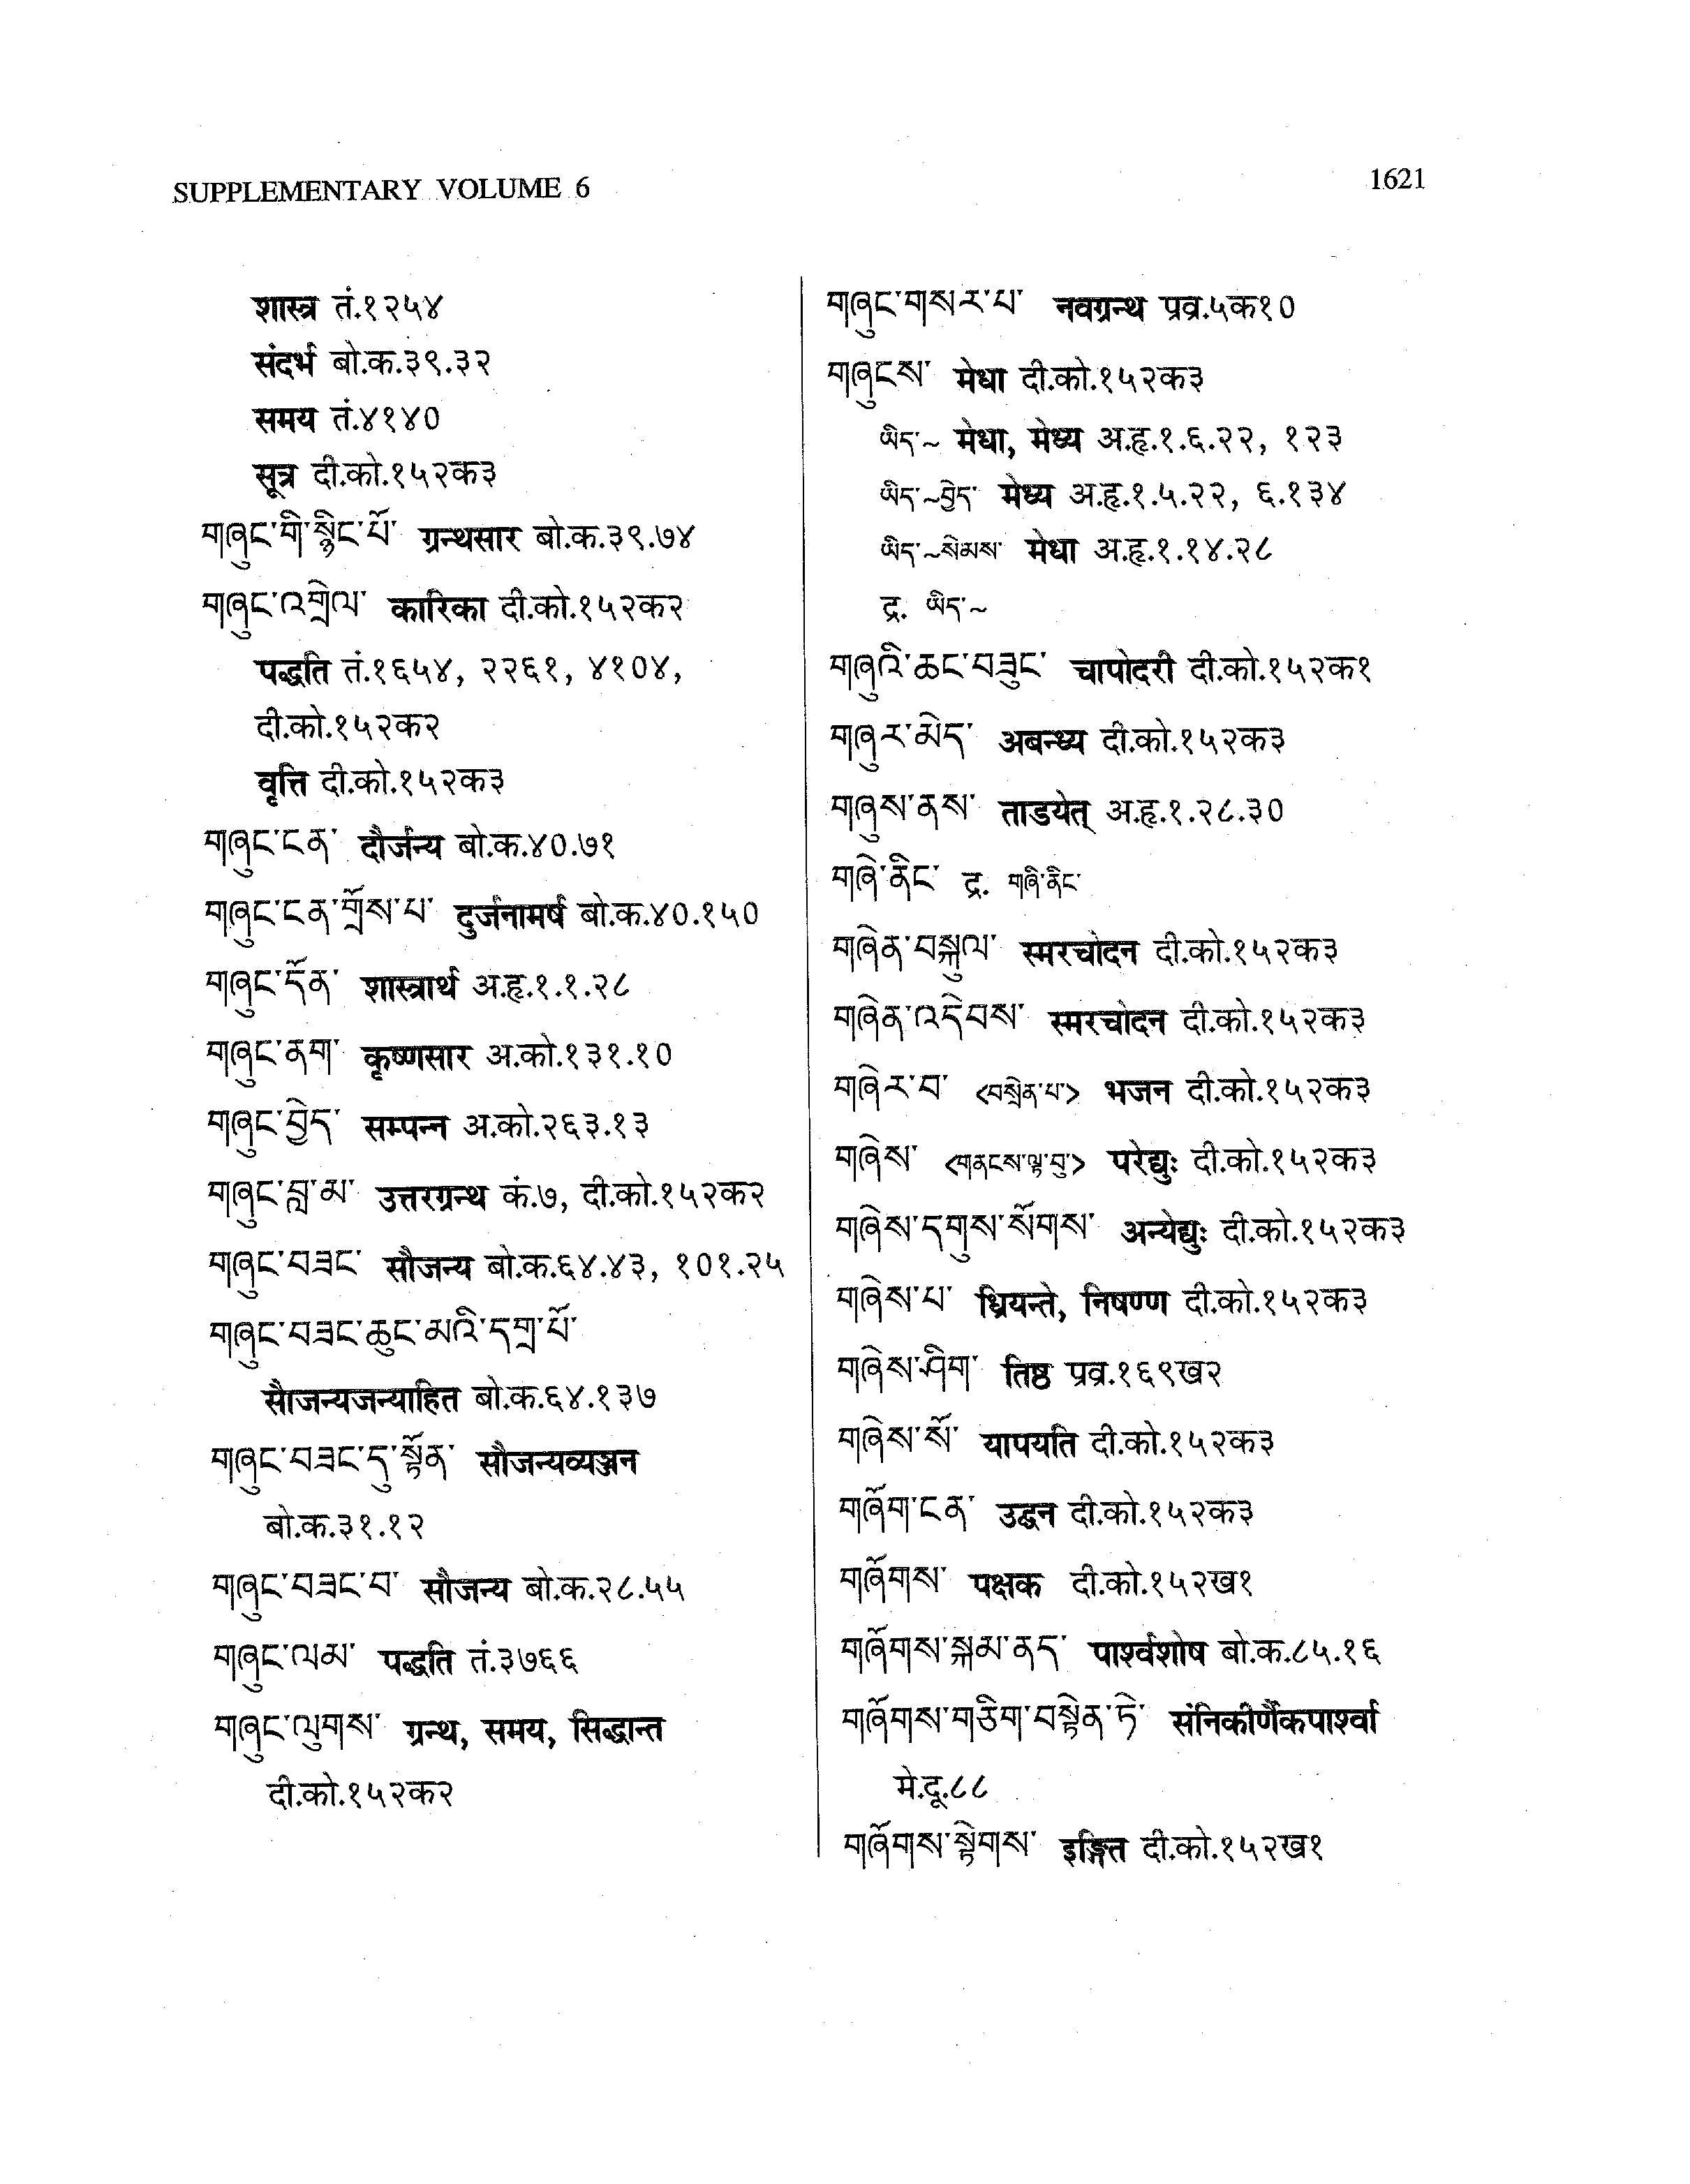 SUPPLEMENTARY VOLUME 6
1621
शास्त्र तं.१२५४
संदर्भ बो.क.३९.३२
समय तं.४१४०
सूत्र दी.को.१५२क३
གཞུང་གི་སྙིང་པོ་ ग्रन्थसार बो.क.३९.७४
གཞུང་འགྲེལ་ कारिका दी.को.१५२क२
पद्धति तं.१६५४, २२६१, ४१०४,
दी.को.१५२क२
वृत्ति दी.को.१५२क३
གཞུང་ངན་ दौर्जन्य बो.क.४०.७१
གཞུང་ངན་གྲོས་པ་ दुर्जनामर्ष बो.क.४०.१५०
གཞུང་དོན་ शास्त्रार्थ अ.हृ.१.१.२८
གཞུང་ནག་ कृष्णसार अ.को.१३१.१०
གཞུང་བྱེད་ सम्पन्न अ.को.२६३.१३
གཞུང་བླ་མ་ उत्तरग्रन्थ कं.७, दी.को.१५२क२
གཞུང་བཟང་ सौजन्य बो.क.६४.४३, १०१.२५
གཞུང་བཟང་ཆུང་མའི་དགྲ་པོ་
सौजन्यजन्याहित बो.क.६४.१३७
གཞུང་བཟང་དུ་སྟོན་ सौजन्यव्यञ्जन
बो.क.३१.१२
གཞུང་བཟང་བ་ सौजन्य बो.क.२८.५५
གཞུང་ལམ་ पद्धति तं.३७६६
གཞུང་ལུགས་ ग्रन्थ, समय, सिद्धान्त
दी.को.१५२क२
གཞུང་གསར་པ་ नवग्रन्थ प्रव्र.५क१०
གཞུངས་ मेधा दी.को.१५२क३
ཡིད་~ मेधा, मेध्य अ.हृ.१.६.२२, १२३
ཡིད་~བྱེད་ मेध्य अ.हृ.१.५.२२, ६.१३४
ཡིད་~སེམས་ मेधा अ.हृ.१.१४.२८
द्र. ཡིད་~
གཞུའི་ཆང་བཟུང་ चापोदरी दी.को.१५२क१
གཞུར་མེད་ अबन्ध्य दी.को.१५२क३
གཞུས་ནས་ ताडयेत् अ.हृ.१.२८.३०
གཞེ་ནིང་ द्र. གཞི་ནིང་
གཞེན་བསྐུལ་ स्मरचोदन दी.को.१५२क३
གཞེན་འདེབས་ स्मरचोदन दी.को.१५२क३
གཞེར་བ་ <བསྲེན་པ་> भजन दी.को.१५२क३
གཞེས་ <གནངས་ལྟ་བུ་> परेद्युः दी.को.१५२क३
གཞེས་དགུས་སོགས་ अन्येद्युः दी.को.१५२क३
གཞེས་པ་ ध्रियन्ते, निषण्ण दी.को.१५२क३
གཞེས་ཤིག་ तिष्ठ प्रव्र.१६९ख२
གཞེས་སོ་ यापयति दी.को.१५२क३
གཞོག་ངན་ उद्धन दी.को.१५२क३
གཞོགས་ पक्षक दी.को.१५२ख१
གཞོགས་སྐམ་ནད་ पार्श्वशोष बो.क.८५.१६
གཞོགས་གཅིག་བསྟེན་ཏེ་ संनिकीर्णैकपार्श्वा
मे.दू.८८
གཞོགས་སྟེགས་ इङ्गित दी.को.१५२ख१